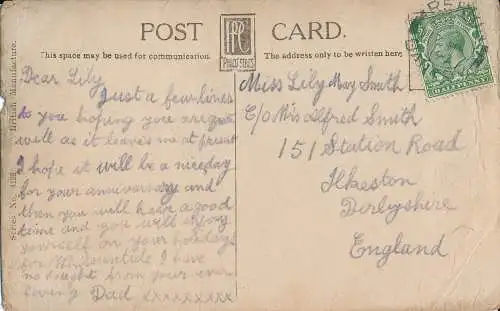 POST CARD.
This space may be used for communication.
The address only to be written here
British Manufacture.
Series No.
Dear Lily
Just a few lines
to you hoping you are quite
well as it leaves me at present
I hope it will be a nice day
for your anniversary and
then you will have a good
time and you will enjoy
yourself on your holiday
for Whitsuntide I have
no doubt from your ever
loving Dad xxxxxxxxx
Miss Lily May Smith
C/O Mrs Alfred Smith
151 Station Road
Ilkeston
Derbyshire
England